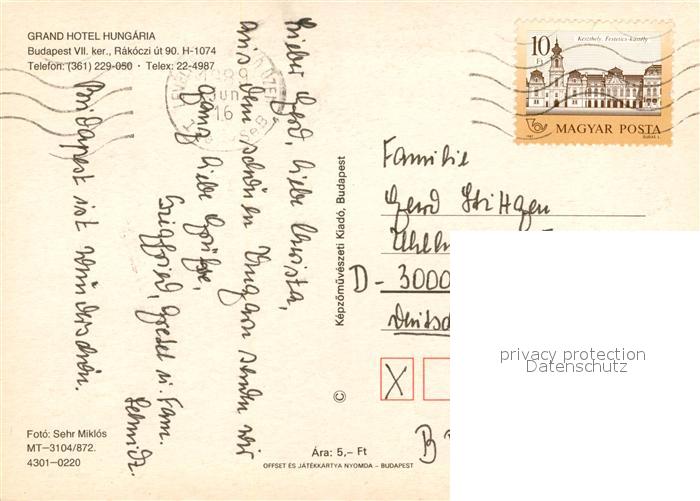 GRAND HOTEL HUNGÁRIA
Budapest VII. ker., Rákóczi út 90. H-1074
Telefon: (361) 229-050 · Telex: 22-4987
Lieber Gerd, liebe Christa,
aus dem schönen Ungarn senden wir
ganz liebe Grüße,
Siegfried, Gretel u. Fam.
Schmidt.
Budapest ist wunderschön.
1989
JUN
16
Keszthely, Festetics-kastély
10
Ft
MAGYAR POSTA
Familie
Gerd
D - 3000
privacy protection
Datenschutz
X
B
Képzőművészeti Kiadó, Budapest
©
Fotó: Sehr Miklós
MT—3104/872.
4301-0220
Ára: 5,– Ft
OFFSET ÉS JÁTÉKKÁRTYA NYOMDA – BUDAPEST